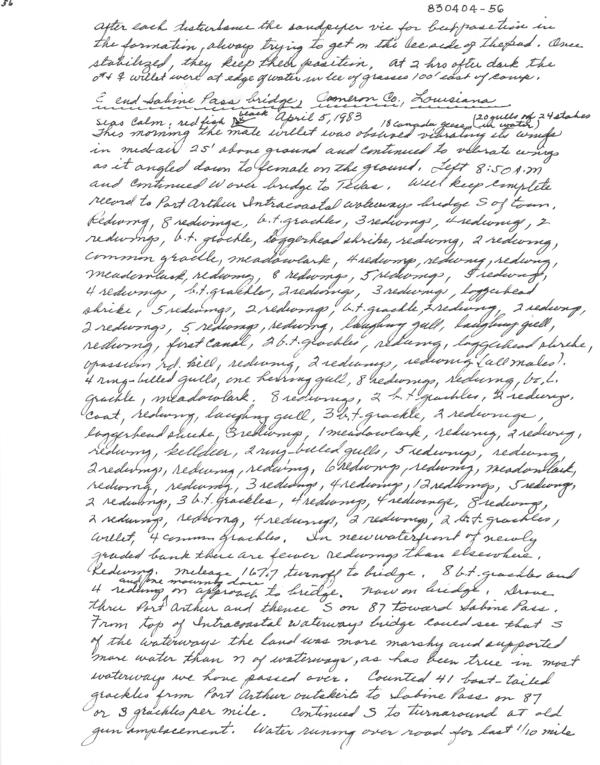 56
830404-56
after each disturbance the sandpiper vie for best position in
the formation, always trying to get in the lee side of the pod. Once
stabilized, they keep their position. At 2 hrs after dark the
♂ & ♀ willet were at edge of water in lee of grasses 100' east of camp.
E end Sabine Pass bridge, Cameron Co., Louisiana
seas calm; red fish black April 5, 1983 18 Canada geese (20 gulls on 24 stakes in water)
This morning the male willet was observed vibrating its wings
in mid air 25' above ground and continued to vibrate wings
as it angled down to female on the ground. Left 8:50 A.M
and continued W over bridge to Texas. Will keep complete
record to Port Arthur Intracoastal waterways bridge S of town.
Redwing, 8 redwings, b.t. grackles, 3 redwings, 4 redwings, 2
redwings, b.t. grackle, loggerhead shrike, redwing, 2 redwing,
common grackle, meadowlark, 4 redwings, redwing, redwing,
meadowlark, redwing, 8 redwings, 5 redwings, redwing,
4 redwings, b.t. grackle, 2 redwings, 3 redwings, loggerhead
shrike, 5 redwings, 2 redwings, b.t. grackle, 2 redwing, 2 redwing,
2 redwings, 5 redwings, redwing, laughing gull, laughing gull,
redwing, first canal, 2 b.t. grackles, redwing, loggerhead shrike,
opossum rd. kill, redwing, 2 redwings, redwing (all males).
4 ring-billed gulls, one herring gull, 8 redwings, redwing, b.t.
grackle, meadowlark, 8 redwings, 2 b.t. grackles, 2 redwings,
coot, redwing, laughing gull, 3 b.t. grackle, 2 redwings,
loggerhead shrike, 3 redwings, 1 meadowlark, redwing, 2 redwing,
redwing, killdeer, 2 ring-billed gulls, 5 redwings, redwing,
2 redwings, redwing, redwing, 6 redwing, redwing, meadowlark,
redwing, redwing, 3 redwings, 4 redwing, 12 redwings, 5 redwing,
2 redwings, 3 b.t. grackles, 4 redwings, 4 redwings, 8 redwing,
2 redwings, redwing, 4 redwings, 2 redwings, 2 b.t. grackles,
willet, 4 common grackles. In new waterfront of newly
graded bank there are fewer redwings than elsewhere.
Redwing. mileage 167.7 turnoff to bridge. 8 b.t. grackles and
4 redwing and one mourning dove on approach to bridge. Now on bridge. Drove
thru Port Arthur and thence S on 87 toward Sabine Pass.
From top of Intracoastal Waterways bridge could see that S
of the waterways the land was more marshy and supported
more water than N of waterways, as has been true in most
waterways we have passed over. Counted 41 boat-tailed
grackles from Port Arthur outskirts to Sabine Pass on 87
or 3 grackles per mile. Continued S to turnaround at old
gun amplacement. Water runing over road for last 1/10 mile